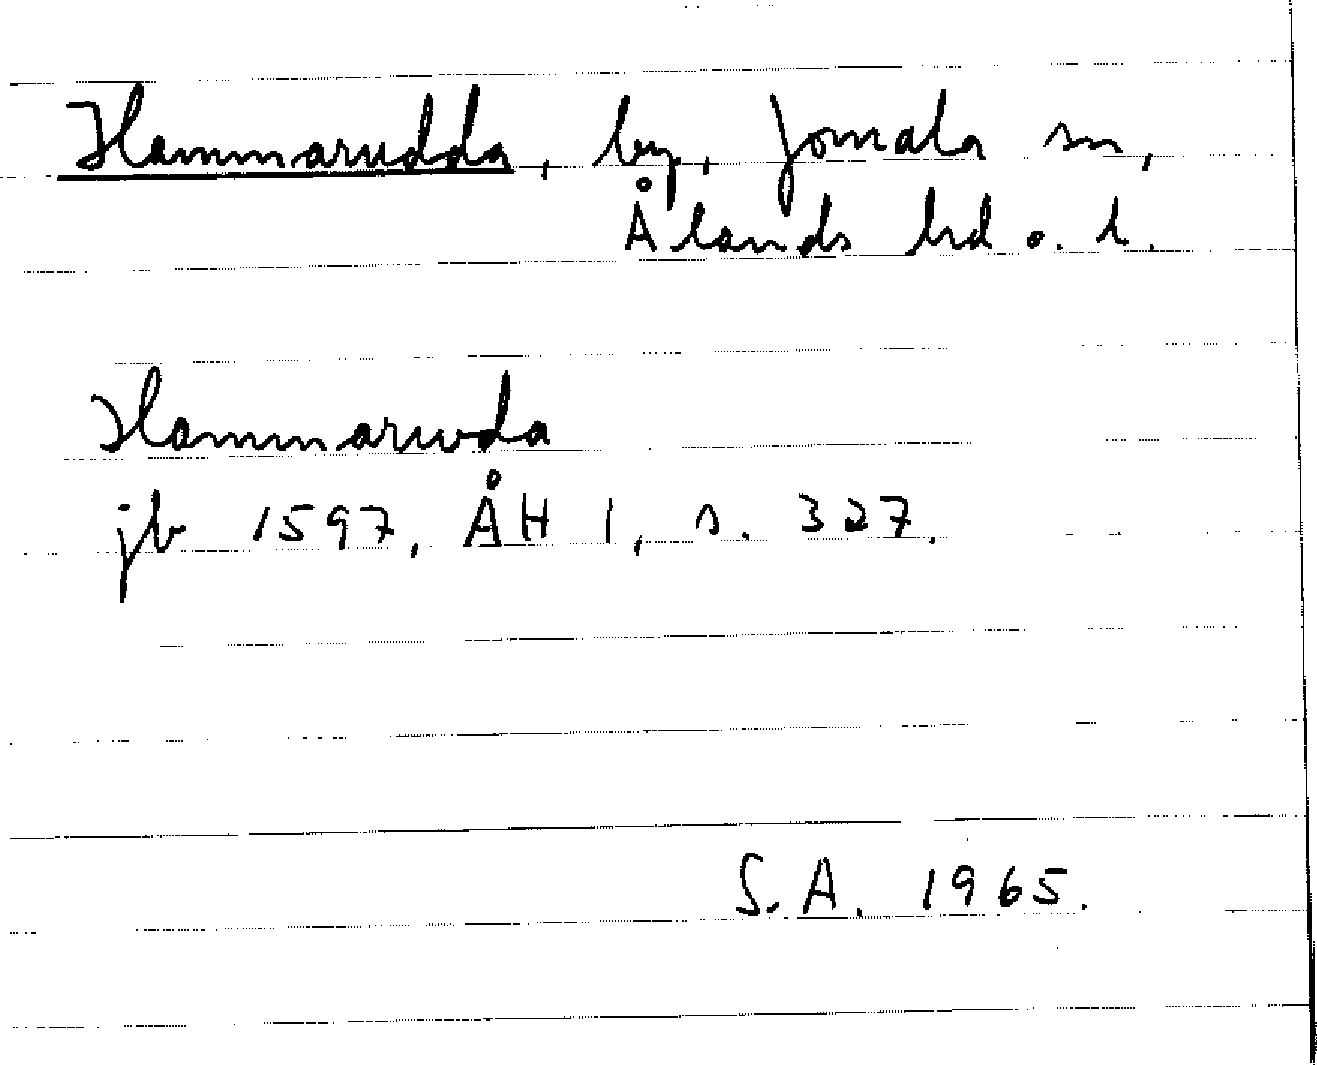 Hammarudda, by, Jomala sn,
Ålands hd o. l.
Hammaruda
jb 1597, ÅH 1, s. 327.
S.A. 1965.